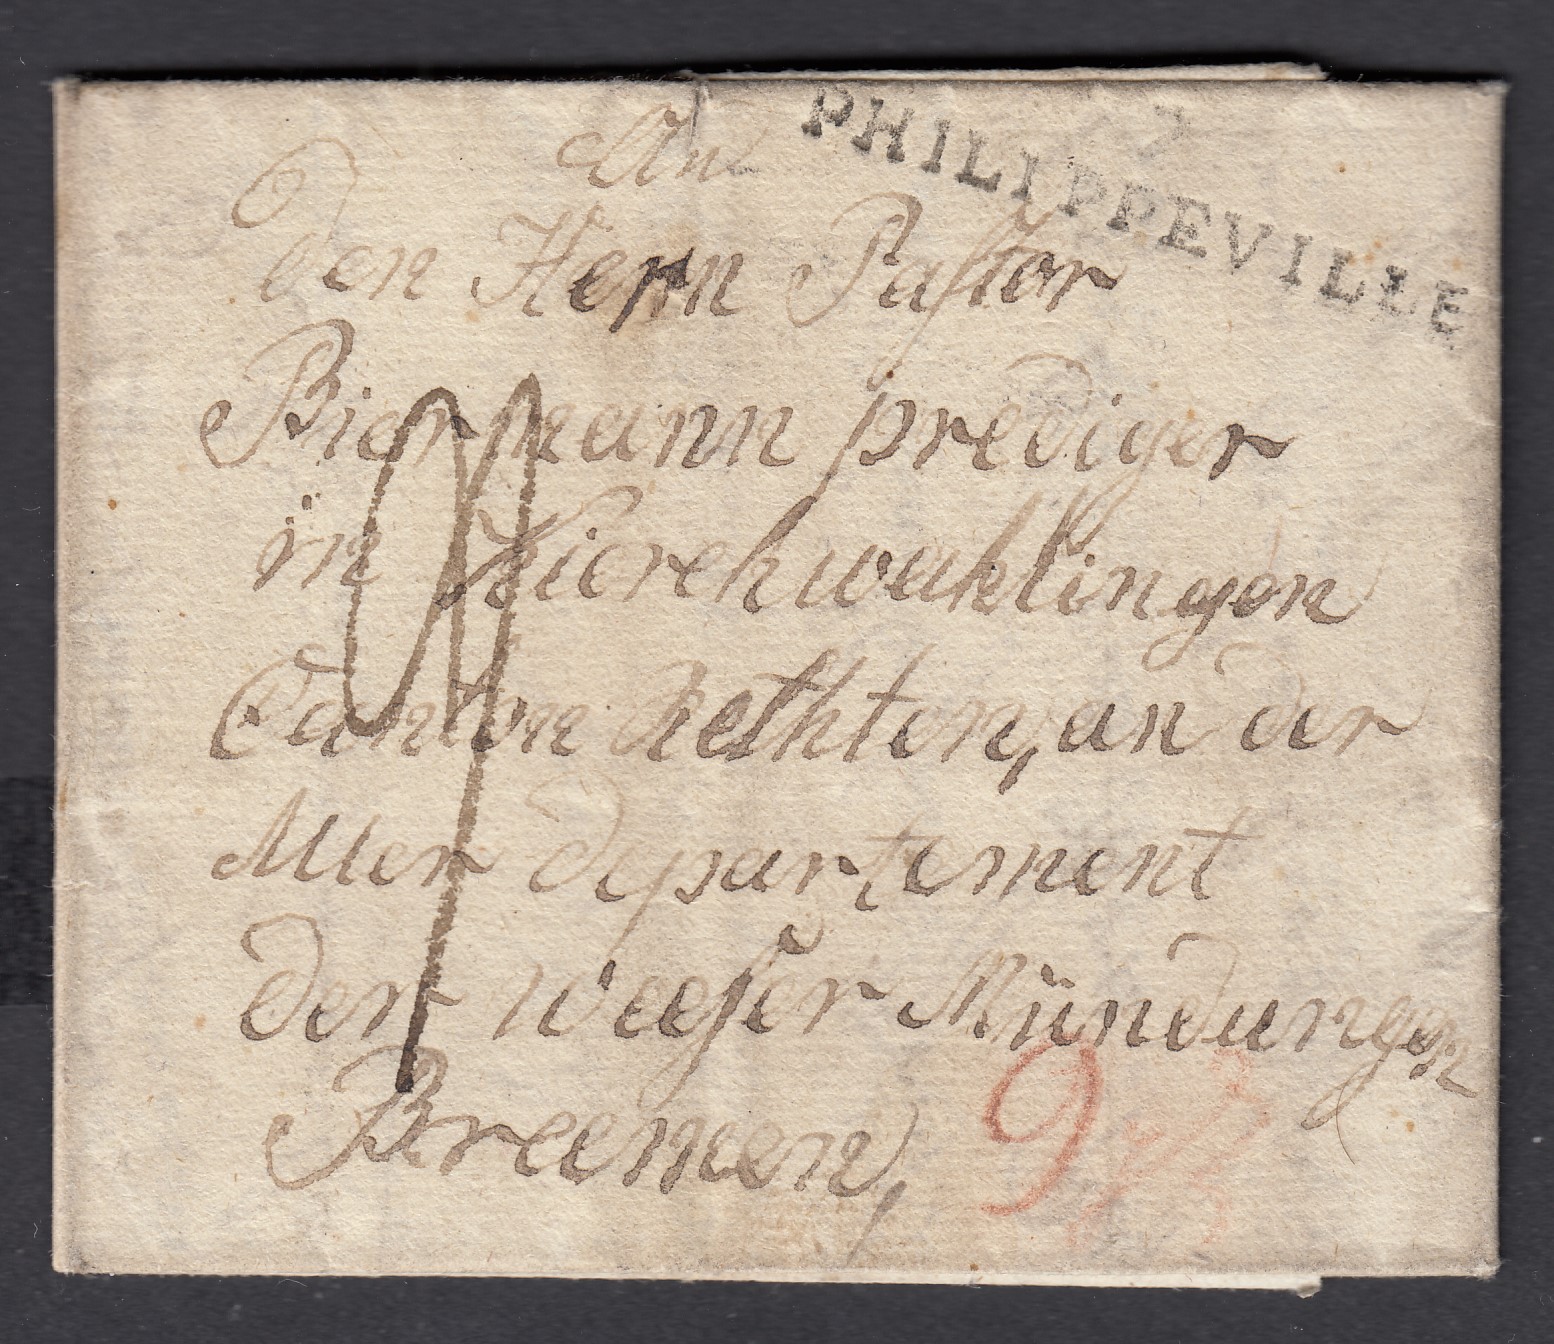 PHILIPPEVILLE
An
den Herrn Pastor
Biermann prediger
in Kierchwahlingen
Canton Rethten, an der
Aller departement
der weeser Mündungen
Breemen,
9